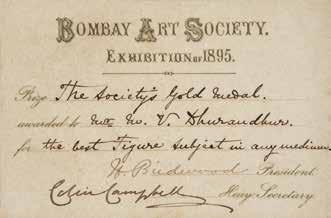 BOMBAY ART SOCIETY.
EXHIBITION OF 1895.
Prize The Society's Gold Medal.
awarded to Mr M. V. Dhurandhur.
for the best Figure subject in any medium.
H Birdwood President.
Colin Campbell Hony Secretary.